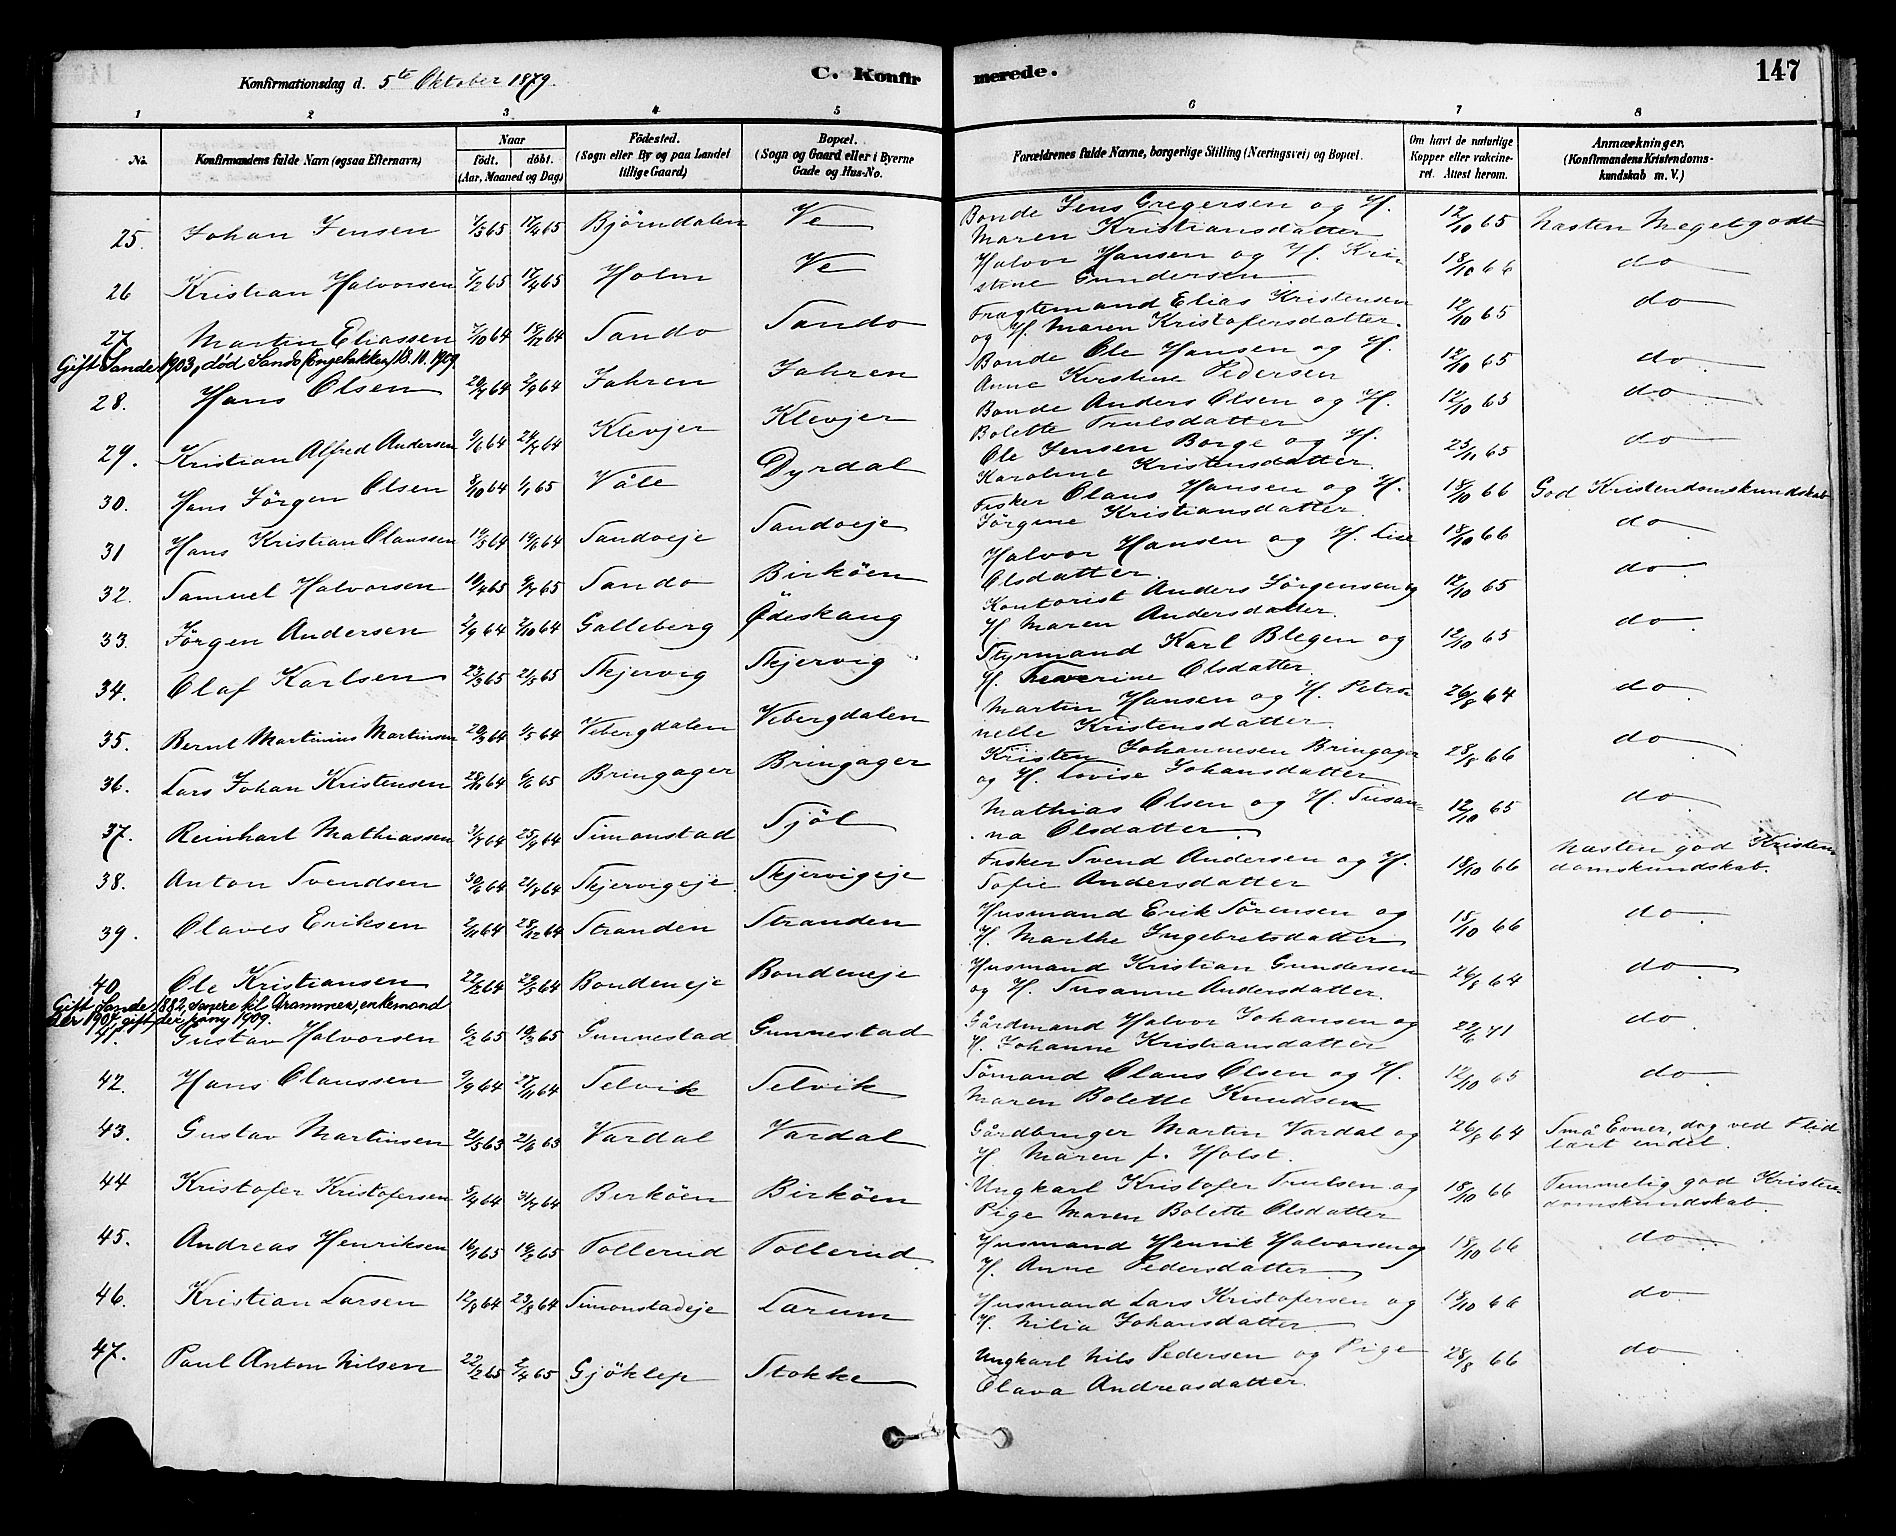 Konfirmationsdag d. 5te Oktober 1879.
C. Konfirmerede.
147
1 2 3 4 5 6 7 8
No.
Konfirmandens fulde Navn (ogsaa Efternavn)
Naar
födt. döbt.
(Aar, Maaned og Dag)
Födested.
(Sogn eller By og paa Landet
tillige Gaard)
Bopæl.
(Sogn og Gaard eller i Byerne
Gade og Hus-No.
Forældrenes fulde Navne, borgerlige Stilling (Næringsvei) og Bopæl.
Om havt de naturlige
Kopper eller vakcine-
ret. Attest herom.
Anmærkninger.
(Konfirmandens Kristendoms-
kundskab m. V.)
25. Johan Jensen 7/3 65 17/4 65 Björndalen Ve Bonde Jens Gregersen og H. 12/10 65 Næsten Meget godt
Maren Kristiansdatter
26 Kristian Halvorsen 7/2 65 17/4 65 Holm Ve Halvor Hansen og H. Kri- 18/10 66 do
stine Gundersen
27. Martin Eliassen 7/10 64 18/12 64 Sando Sando Fragtemand Elias Kristensen 12/10 65 do
og H. Maren Kristofersdatter.
Gift Sande 1903, død Sande (Engebakken) 13.10.1909
28. Hans Olsen 64 64 Jahren Jahren Bonde Ole Hansen og H. 12/10 65 do
Anne Kirstine Pedersen
29. Kristian Alfred Andersen 9/6 64 24/7 64 Klevjer Klevjer Bonde Anders Olsen og H. 12/10 65 do
Bolette Trulsdatter
30. Hans Jörgen Olsen 8/10 64 1/1 65 Våle Dyrdal Ole Jensen Borge og H. 23/11 65 do
Karoline Kristensdatter
31 Hans Kristian Claussen 64 64 Sandveje Sandveje Fisker Claus Hansen og H. 18/10 66 God Kristendomskundskab
Jörgine Kristiansdatter
32. Samuel Halvorsen 65 9/7 65 Sando Birköen Halvor Hansen og H. Lise 18/10 66 do
Olsdatter
33. Jörgen Andersen 2/9 64 2/10 64 Galleberg Ödeskaug Kontorist Anders Jörgensen og 12/10 65 do
H. Maren Andersdatter.
34. Olaf Karlsen 23/3 65 21/5 65 Skjervig Skjervig Styrmand Karl Blegen og 12/10 65 do
H. Severine Olsdatter
35. Bernt Martinius Martinsen 20/3 64 1/5 64 Vebergdalen Vebergdalen Martin Hansen og H. Petro- 26/8 64 do
nelle Kristensdatter
36. Lars Johan Kristensen 28/11 64 6/6 65 Bringager Bringager Kristen Johannesen Bringager 28/8 66 do
og H. Lovise Johansdatter
37. Reinhart Mathiassen 3/7 64 25/9 64 Simonstad Sjöl Mathias Olsen og H. Susan- 12/10 65 do
na Olsdatter
38. Anton Svendsen 30/6 64 21/8 64 Skjervigeje Skjervigeje Fisker Svend Andersen og H. 18/10 66 Næsten god Kristen
Sofie Andersdatter domskundskab.
39. Olaves Eriksen 2/11 64 28/12 64 Stranden Stranden Husmand Erik Sörensen og 15/10 66 do
H. Marthe Ingebretsdatter
40. Ole Kristiansen 22/2 64 29/3 64 Bondeneje Bondeneje Husmand Kristian Gundersen 26/8 64 do
og H. Susanne Andersdatter
Gift Sande 1882, senere til Drammen, enkemand
der 1907, gift der pany 1909.
41. Gustav Halvorsen 6/2 65 19/3 65 Gunnestad Gunnestad Gårdmand Halvor Johansen og 22/6 71 do
H. Johanne Kristiansdatter
42. Hans Claussen 9/9 64 27/11 64 Selvik Selvik Sömand Claus Olsen og H. 12/10 65 do
Maren Bolette Knudsen
43. Gustav Martinsen 2/5 63 21/6 63 Vardal Vardal Gårdbruger Martin Vardal og 26/8 64 Små Evner, dog ved Flid
H. Maren f. Holst. lært endel.
44 Kristofer Kristofersen 5/4 64 31/7 64 Birköen Birköen Ungkarl Kristofer Trulsen og 18/10 66 Temmelig god Kristen-
Pige Maren Bolette Olsdatter domskundskab.
45. Andreas Henriksen 16/1 65 19/2 65 Tollerud Tollerud Husmand Henrik Halvorsen og 18/10 66 do
H. Anne Pedersdatter
46. Kristian Larsen 12/8 64 23/8 64 Simonstadeje Lærum Husmand Lars Kristofersen og 18/10 66 do
H. Nilia Johansdatter
47. Paul Anton Nilsen 22/2 65 2/4 65 Gjöklep Stokke Ungkarl Nils Pedersen og Pige 28/8 66 do
Olava Andreasdatter.